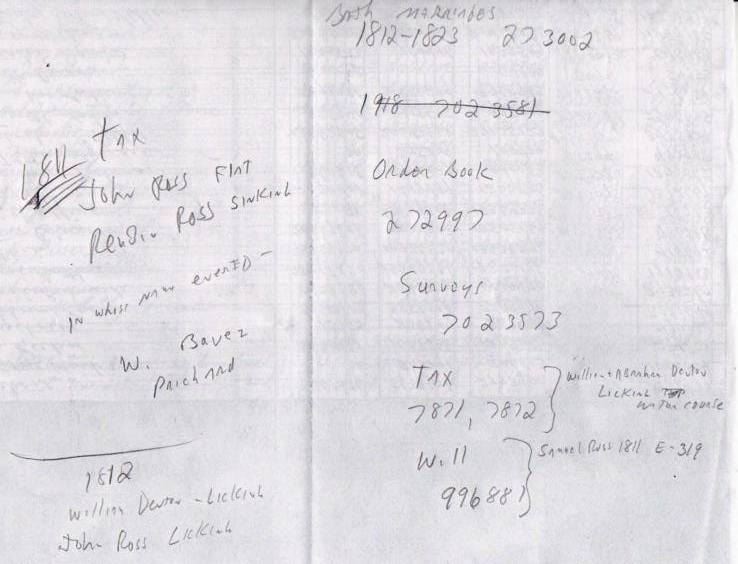 1811 Tax
John Ross Flat
Reuben Ross Sinking
in whose name entered -
W.
Prichard
1812
William Denton - Licking
John Ross Licking
Bath Marriages
1812-1823 273002
1918 7023581
Order Book
272997
Surveys
7023573
Tax
7871, 7872
William + Abraham Denton
Licking
water course
Will
996881
Samuel Ross 1811 E-319